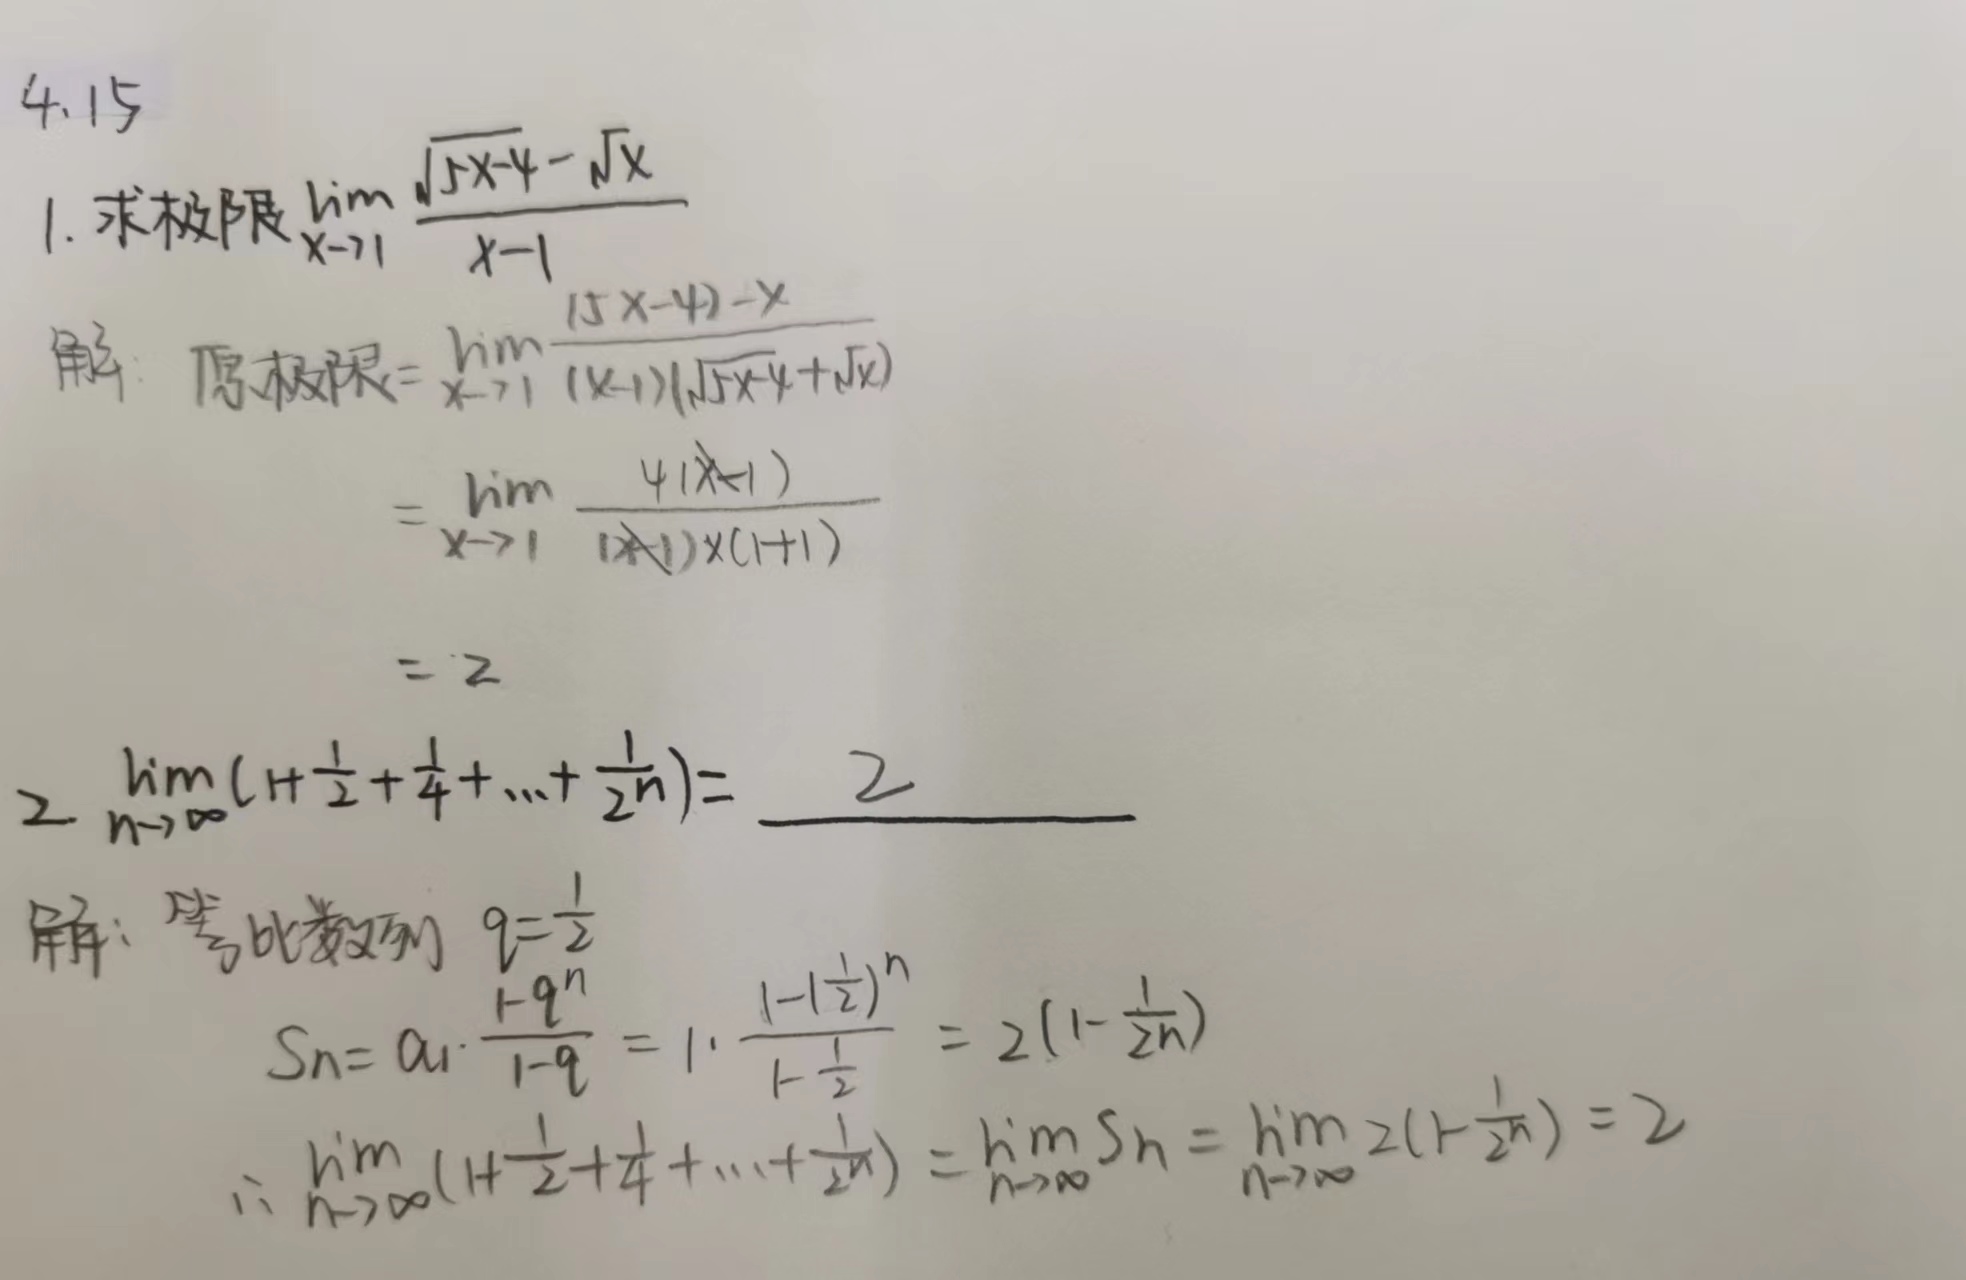 4.15
1. 求极限 lim_{x→1} (√(5x-4) - √x)/(x-1)
解: 原极限 = lim_{x→1} ((5x-4)-x)/((x-1)(√(5x-4)+√x))
= lim_{x→1} 4(x-1)/((x-1)×(1+1))
= 2
2 lim_{n→∞} (1+1/2+1/4+...+1/2^n) = 2
解: 等比数列 q=1/2
Sn = a₁·(1-q^n)/(1-q) = 1·(1-(1/2)^n)/(1-1/2) = 2(1-1/2^n)
∴ lim_{n→∞} (1+1/2+1/4+...+1/2^n) = lim_{n→∞} Sn = lim_{n→∞} 2(1-1/2^n) = 2